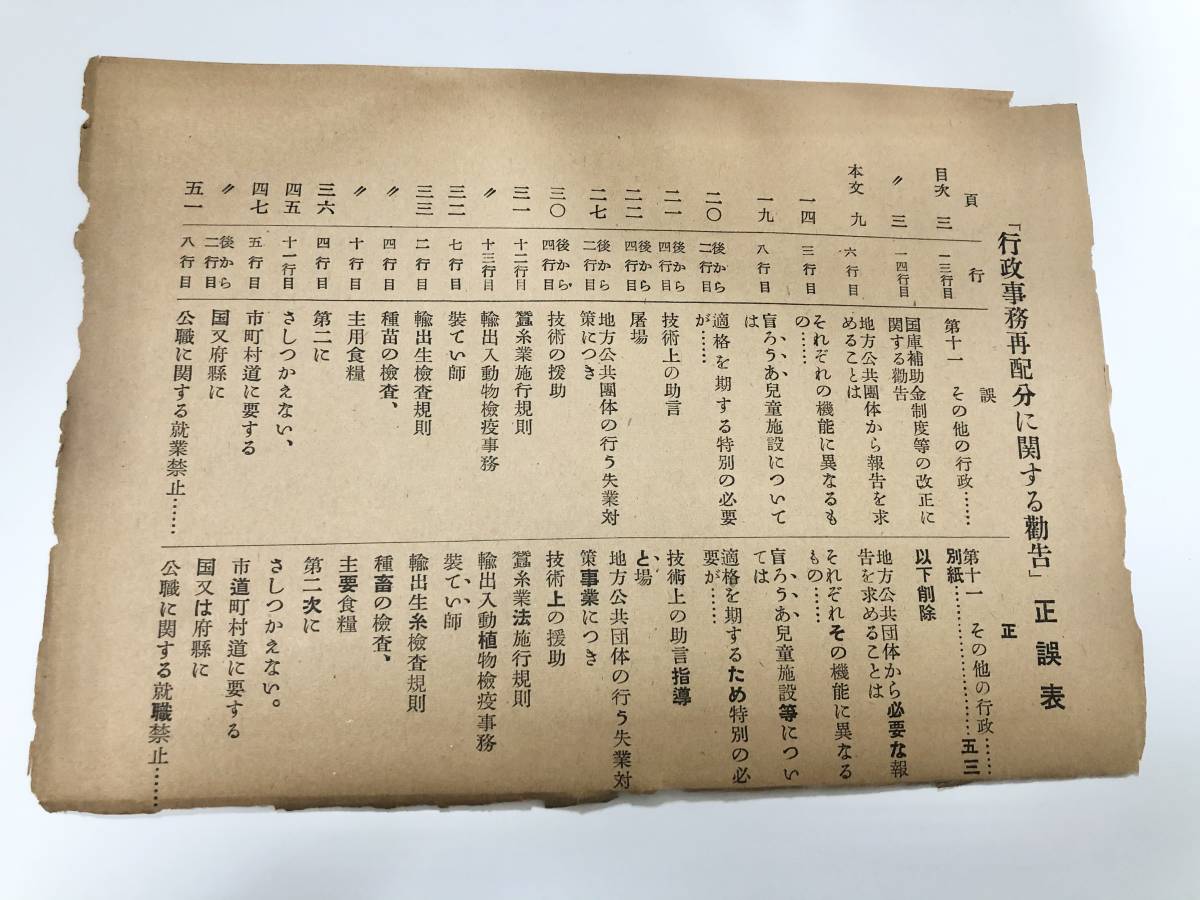 「行政事務再配分に関する勸告」正誤表
頁 行 誤 正
目次 三 一三行目 第十一 その他の行政…… 第十一 その他の行政……
別紙……………………五三
〃 三 一四行目 国庫補助金制度等の改正に
関する勸告
以下削除
本文 九 六行目 地方公共團体から報告を求
めることは
地方公共団体から必要な報
告を求めることは
一四 三行目 それぞれの機能に異なるも
の……
それぞれその機能に異なる
もの……
一九 八行目 盲ろうあ兒童施設について
は
盲ろうあ兒童施設等につい
ては
二〇 後から二行目 適格を期する特別の必要
が……
適格を期するため特別の必
要が……
二一 後から四行目 技術上の助言 技術上の助言指導
二二 後から四行目 屠場 と場
二七 後から二行目 地方公共團体の行う失業対
策につき
地方公共団体の行う失業対
策事業につき
三〇 後から四行目 技術の援助 技術上の援助
三一 十二行目 蠶糸業施行規則 蠶糸業法施行規則
〃 十三行目 輸出入動物檢疫事務 輸出入動植物檢疫事務
三二 七行目 裝てい師 裝てい師
三三 二行目 輸出生檢査規則 輸出生糸檢査規則
〃 四行目 種苗の檢査、 種畜の檢査、
〃 十行目 主用食糧 主要食糧
三六 四行目 第二に 第二次に
四五 十一行目 さしつかえない、 さしつかえない。
四七 五行目 市町村道に要する 市道町村道に要する
〃 後から二行目 国又府縣に 国又は府縣に
五一 八行目 公職に関する就業禁止…… 公職に関する就職禁止……